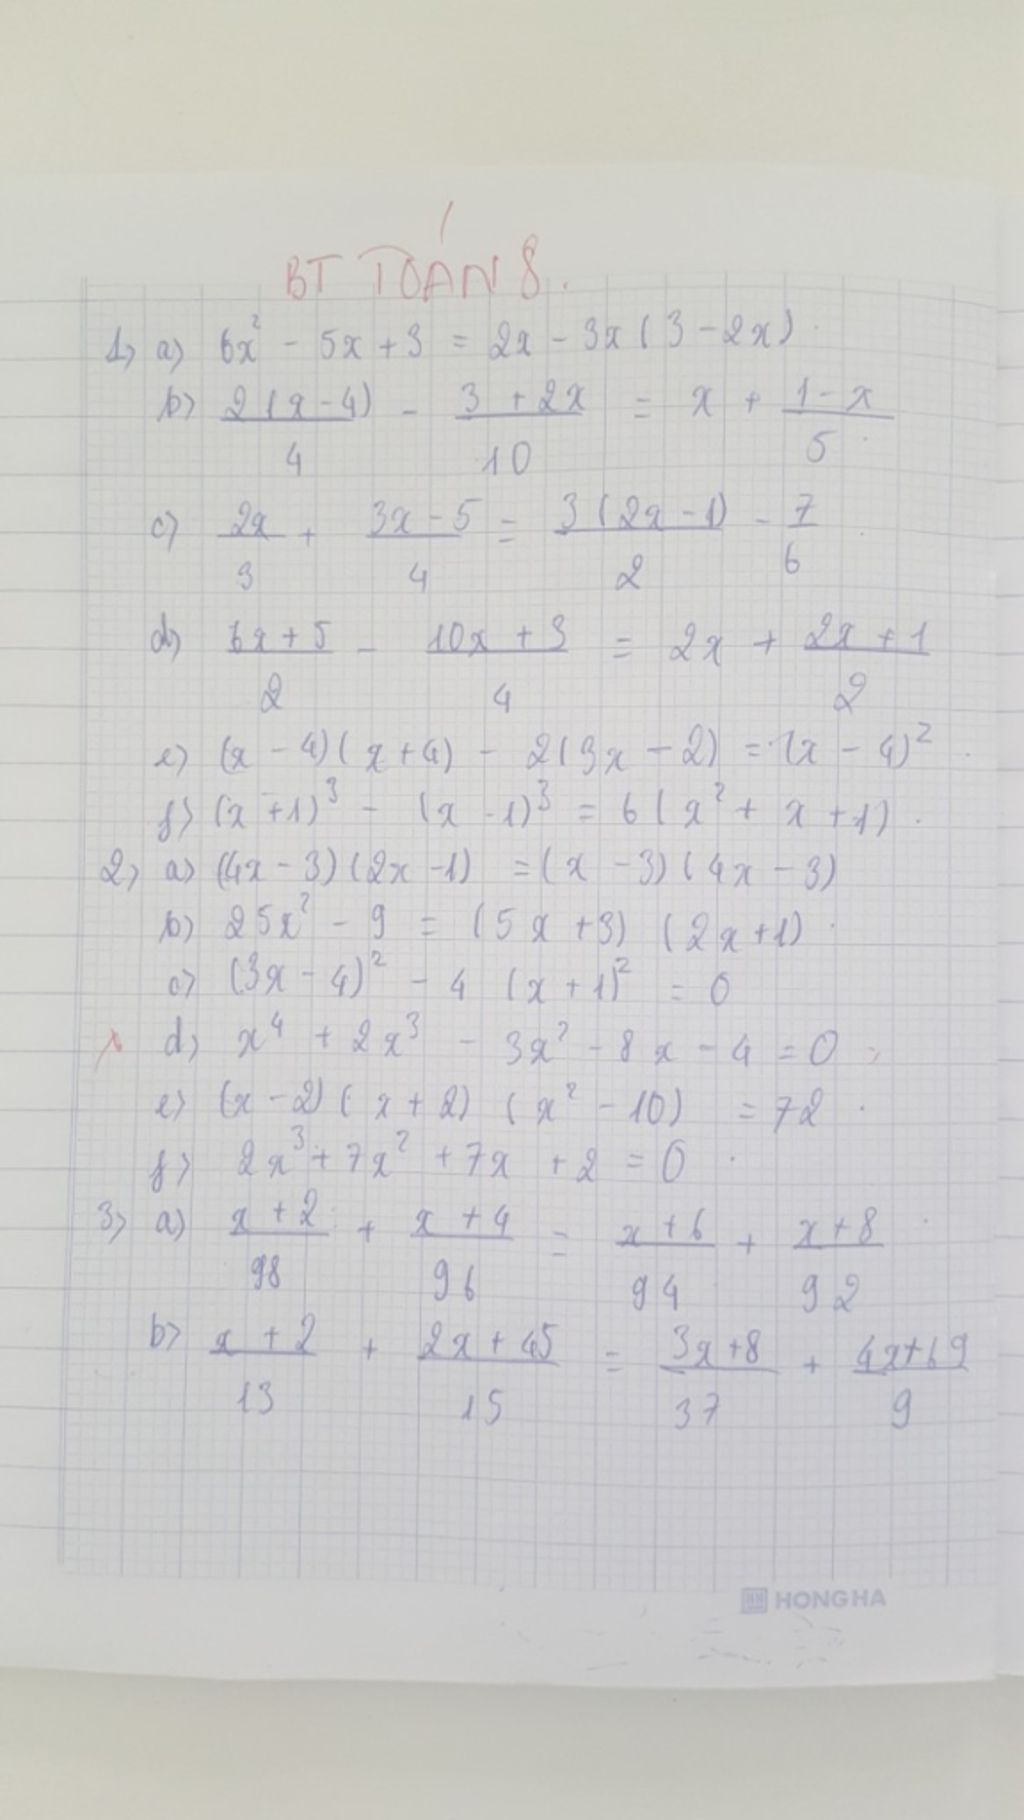 BT TOÁN 8.
1, a) 6x² - 5x + 3 = 2x - 3x(3 - 2x).
b) 2(x-4)/4 - 3+2x/10 = x + 1-x/5.
c) 2x/3 + 3x-5/4 = 3(2x-1)/2 - 7/6.
d) 6x+5/2 - 10x+3/4 = 2x + 2x+1/2
e) (x-4)(x+4) - 2(3x-2) = (x-4)².
f) (x+1)³ - (x-1)³ = 6(x² + x + 1).
2, a) (4x-3)(2x-1) = (x-3)(4x-3)
b) 25x² - 9 = (5x+3)(2x+1).
c) (3x-4)² - 4(x+1)² = 0
d) x⁴ + 2x³ - 3x² - 8x - 4 = 0
e) (x-2)(x+2)(x²-10) = 72.
f) 2x³ + 7x² + 7x + 2 = 0.
3, a) x+2/98 + x+4/96 = x+6/94 + x+8/92
b) x+2/13 + 2x+45/15 = 3x+8/37 + 4x+69/9
HONG HA